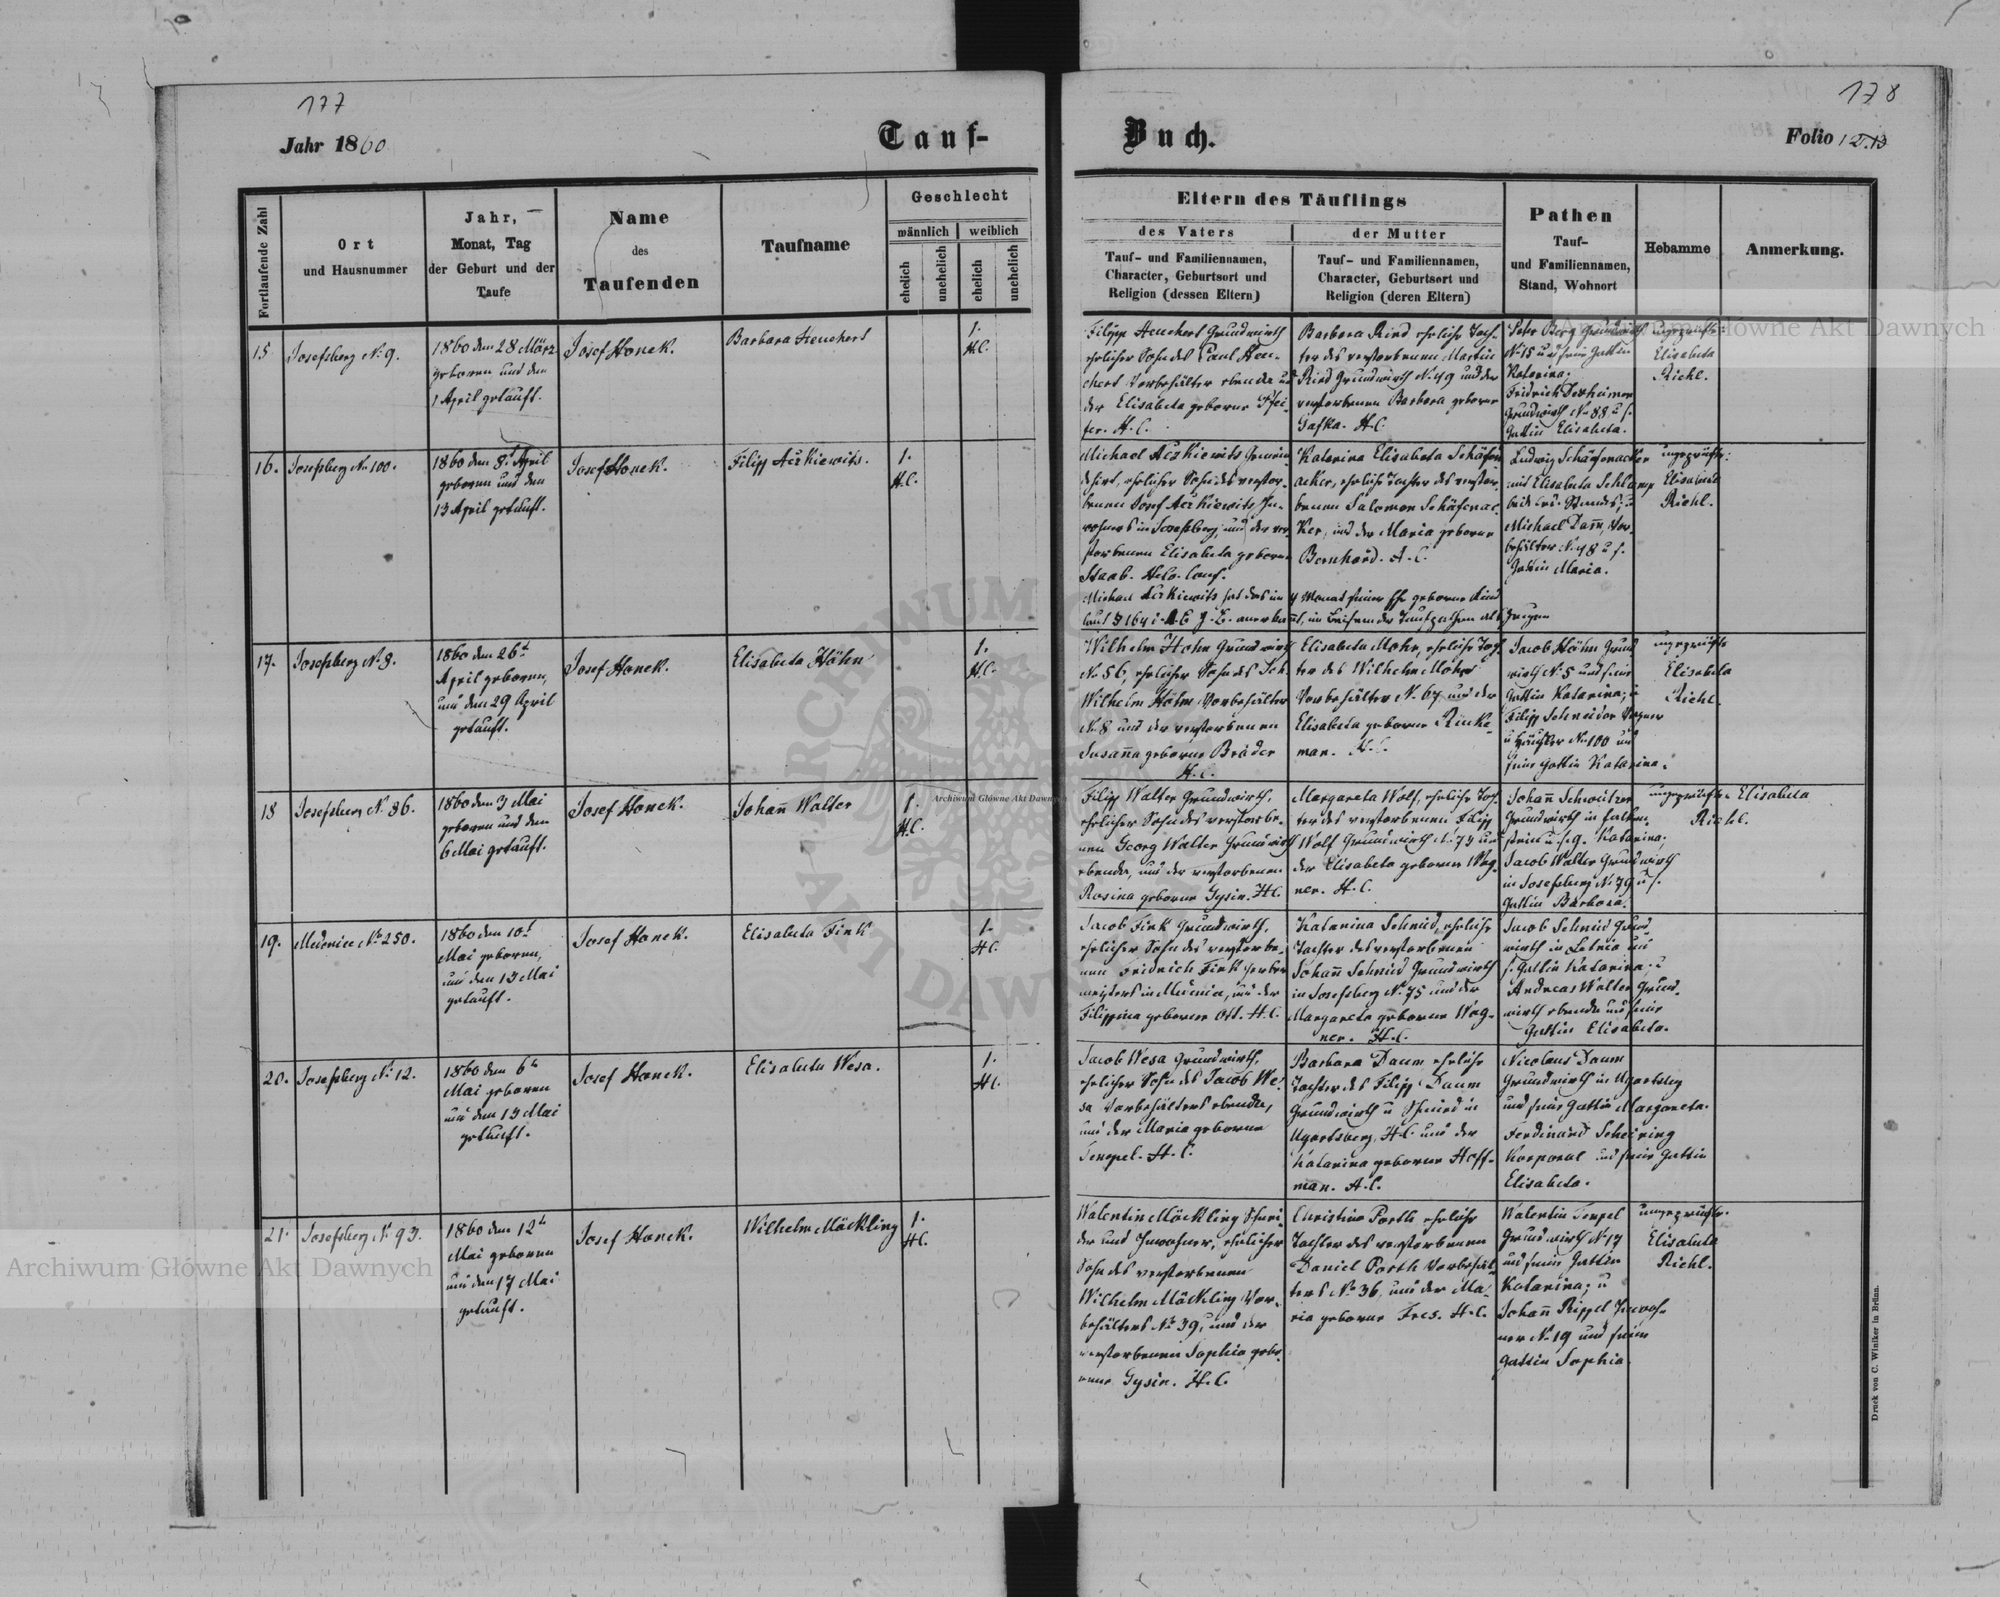 177
178
Jahr 1860
Tauf-
Buch.
Folio 12.13
Fortlaufende Zahl
Ort
und Hausnummer
Jahr,
Monat, Tag
der Geburt und der
Taufe
Name
des
Taufenden
Taufname
Geschlecht
männlich
weiblich
ehelich
unehelich
ehelich
unehelich
Eltern des Täuflings
des Vaters
Tauf- und Familiennamen,
Character, Geburtsort und
Religion (dessen Eltern)
der Mutter
Tauf- und Familiennamen,
Character, Geburtsort und
Religion (deren Eltern)
Pathen
Tauf-
und Familiennamen,
Stand, Wohnort
Hebamme
Anmerkung.
15
Josefsberg No 9.
1860 den 28 März
geboren und den
1 April getauft.
Josef Honek.
Barbara Heuchert
1.
H.C.
Filipp Heuchert Grundwirth
ehelicher Sohn des Paul Heu-
chert Vorbehälter ebenda und
der Elisabeta geborne Pfei-
fer. H.C.
Barbara Ried eheliche Toch-
ter des verstorbenen Martin
Ried Grundwirth No 49 und der
verstorbenen Barbara geborne
Gafka. H.C.
Peter Berg Grundwirth
No 15 und seine Gattin
Katarina;
Fridrich
Grundwirth No 88 u s.
Gattin Elisabeta.
ungeprüfte:
Elisabeta
Richl.
16.
Josefsberg No 100.
1860 den 8t April
geboren und den
13 April getauft.
Josef Honek.
Filipp Aczkiewits.
1.
H.C.
Michael Aczkiewits Gemein-
dehirt, ehelicher Sohn des verstor-
benen Josef Aczkiewits In-
wohners in Josefsberg, und der ver-
storbenen Elisabeta geborne
Staab. Helv. Conf.
Katarina Elisabeta Schäfen-
acker, eheliche Tochter des verstor-
benen Salomon Schäfenac-
ker, und der Maria geborne
Bernhard. A.C.
Ludwig Schäfenacker
mit Elisabeta Schlamp
beide led. Standes; u
Michael Dam̄, Vor-
behälter No 48 u s.
Gattin Maria.
ungeprüfte:
Elisabeta
Richl.
Michael Aczkiewits hat das im 4 Monat seiner Ehe geborne Kind
laut § 164 d. A. B. G. B. anerkan̄t, im Beisein der Taufpathen als Zeugen
17.
Josefsberg No 8.
1860 den 26t
April geboren,
und den 29 April
getauft.
Josef Honek.
Elisabeta Höhn
1.
H.C.
Wilhelm Höhn Grundwirth
No 56, ehelicher Sohn des Joh.
Wilhelm Höhn Vorbehälter
No 8 und der verstorbenen
Susan̄a geborne Bräder
H.C.
Elisabeta Mohr, eheliche Toch-
ter des Wilhelm Mohr
Vorbehälter No 67 und der
Elisabeta geborne Rinke-
man. H.C.
Jacob Höhn Grund-
wirth No 5 und seine
Gattin Katarina; u
Filipp Schneider Wagner
u Häusler No 100 und
seine Gattin Katarina.
ungeprüfte
Elisabeta
Richl.
18
Josefsberg No 86.
1860 den 3 Mai
geboren und den
6 Mai getauft.
Josef Honek.
Johan̄ Walter
1.
H.C.
Filipp Walter Grundwirth,
ehelicher Sohn des verstorbe-
nen Georg Walter Grundwirth
ebenda, und der verstorbenen
Rosina geborne Gysin. H.C.
Margareta Wolf, eheliche Toch-
ter des verstorbenen Filipp
Wolf Grundwirth No 73 und
der Elisabeta geborne Wag-
ner. H.C.
Johan̄ Schweitzer
Grundwirth in Falken-
stein u s. G. Katarina;
Jacob Walter Grundwirth
in Josefsberg No 79 u s.
Gattin Barbara.
ungeprüfte Elisabeta
Richl.
19.
Medenice No 250.
1860 den 10t
Mai geboren,
und den 13 Mai
getauft.
Josef Honek.
Elisabeta Fink
1.
H.C.
Jacob Fink Grundwirth,
ehelicher Sohn des verstorbe-
nen Fridrich Fink Ferber
meisters in Medenice, und der
Filippina geborene Ott. H.C.
Katarina Schmid, eheliche
Tochter des verstorbenen
Johan̄ Schmid Grundwirth
in Josefsberg No 75 und der
Margareta geborene Wag-
ner. H.C.
Jacob Schmid Grund-
wirth in Letnia und
s. Gattin Katarina; u
Andreas Walter Grund-
wirth ebenda und seine
Gattin Elisabeta.
20.
Josefsberg No 12.
1860 den 6te
Mai geboren
und den 13 Mai
getauft.
Josef Honek.
Elisabeta Wesa.
1.
H.C.
Jacob Wesa Grundwirth,
ehelicher Sohn des Jacob We-
sa Vorbehälters ebenda,
und der Maria geborne
Tempel. H.C.
Barbara Daum eheliche
Tochter des Filipp Daum
Grundwirth u Schmied in
Ugartsberg, H.C. und der
Katarina geborene Hoff-
man. A.C.
Nicolaus Daum
Grundwirth in Ugartsberg
und seine Gattin Margareta.
Ferdinand Scheiring
Korporal und seine Gattin
Elisabeta.
21.
Josefsberg No 93.
1860 den 12te
Mai geboren
und den 17 Mai
getauft.
Josef Honek.
Wilhelm Möckling
1.
H.C.
Walentin Möckling Schnei-
der und Inwohner, ehelicher
Sohn des verstorbenen
Wilhelm Möckling Vor-
behälters No 39, und der
verstorbenen Sophia gebo-
rene Gysin. H.C.
Christina Porth eheliche
Tochter des verstorbenen
Daniel Porth Vorbehäl-
ters No 36, und der Ma-
ria geborne Fres. H.C.
Walentin Tempel
Grundwirth No 17
und seine Gattin
Katarina; u
Johan̄ Rippel Inwoh-
ner No 19 und seine
Gattin Sophia.
ungeprüfte.
Elisabeta
Richl.
Druck von C. Winiker in Brünn.
Archiwum Główne Akt Dawnych
Archiwum Główne Akt Dawnych
Archiwum Główne Akt Dawnych
ARCHIWUM
AKT DAWNYCH